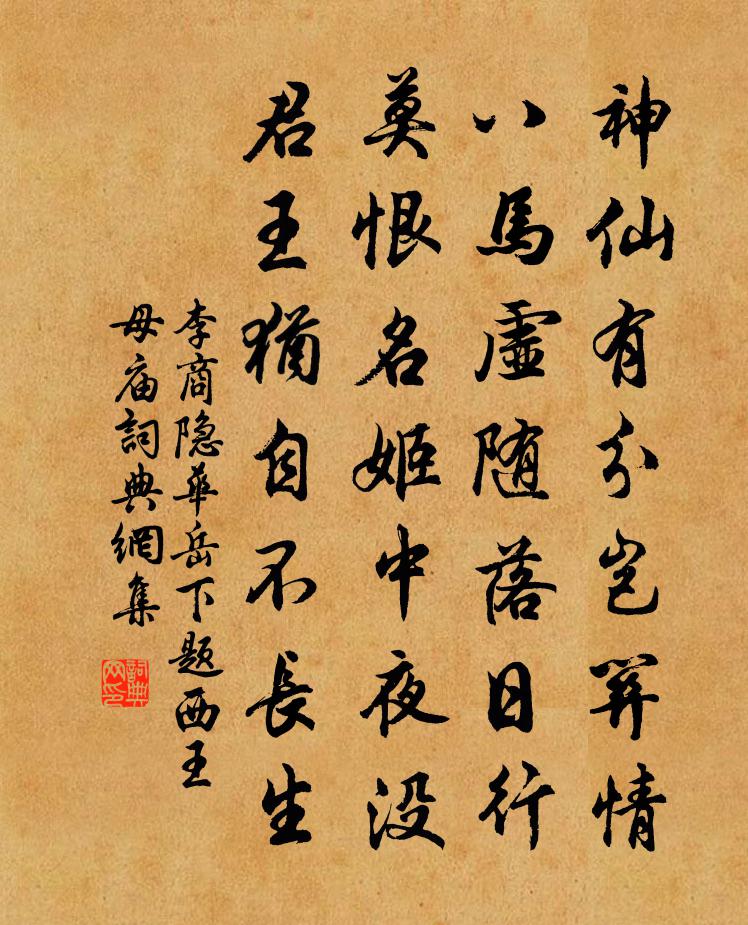 神仙有分豈關情
八馬虛随落日行
莫恨名姬中夜没
君王猶自不長生
李商隐華岳下题西王
母庙詞典網集
詞典
网印